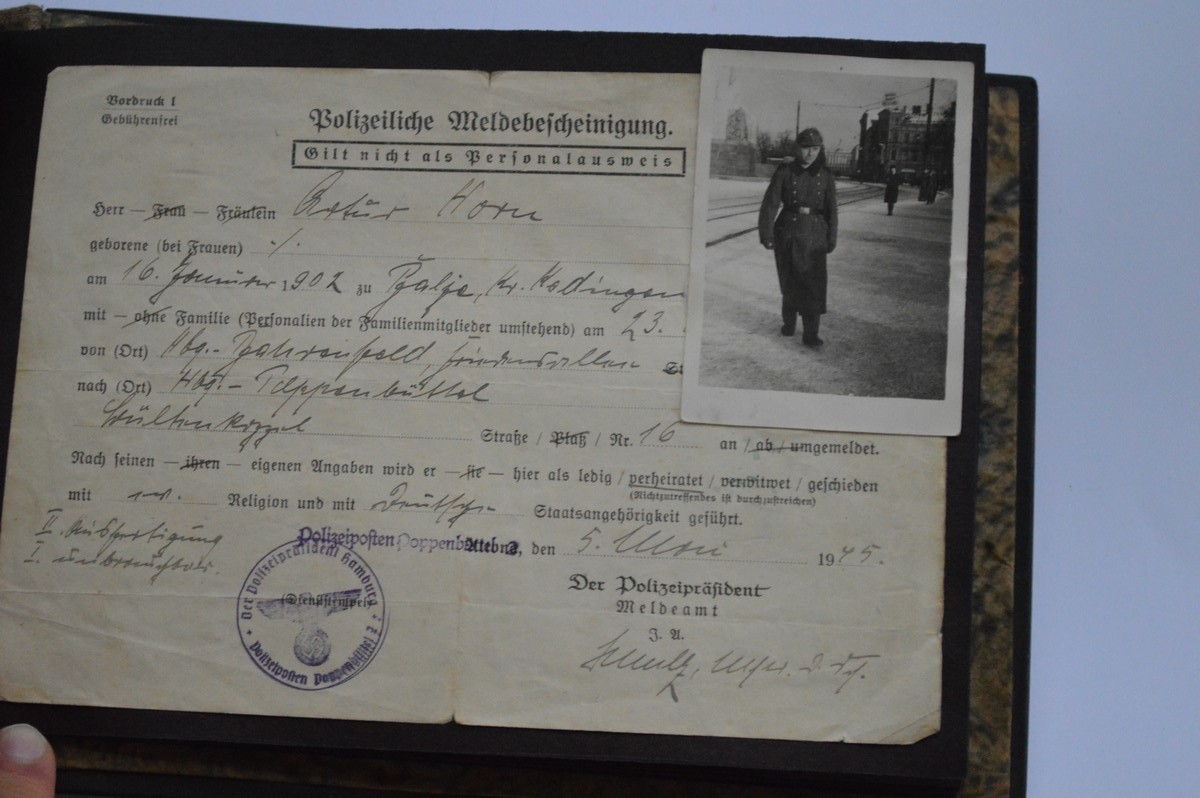 Vordruck 1
Gebührenfrei
Polizeiliche Meldebescheinigung.
Gilt nicht als Personalausweis
Herr – Frau – Fräulein Artur Horn
geborene (bei Frauen) ·/.
am 16. Januar 1902 zu Balje, Kr. Kedingen
mit – ohne Familie (Personalien der Familienmitglieder umstehend) am 23.
von (Ort) Hbg.- Bahrenfeld,
nach (Ort) Hbg.- Poppenbüttel
Straße / Platz / Nr. 16 an / ab / umgemeldet.
Nach seinen – ihren – eigenen Angaben wird er – sie – hier als ledig / verheiratet / verwitwet / geschieden
(Nichtzutreffendes ist durchzustreichen)
mit ev. Religion und mit Deutscher Staatsangehörigkeit geführt.
II. Ausfertigung
I. unbrauchbar.
Polizeiposten Poppenbüttel, den 5. Mai 1945.
(Dienststempel)
Der Polizeipräsident Hamburg
Polizeiposten Poppenbüttel 2
Der Polizeipräsident
Meldeamt
J. A.